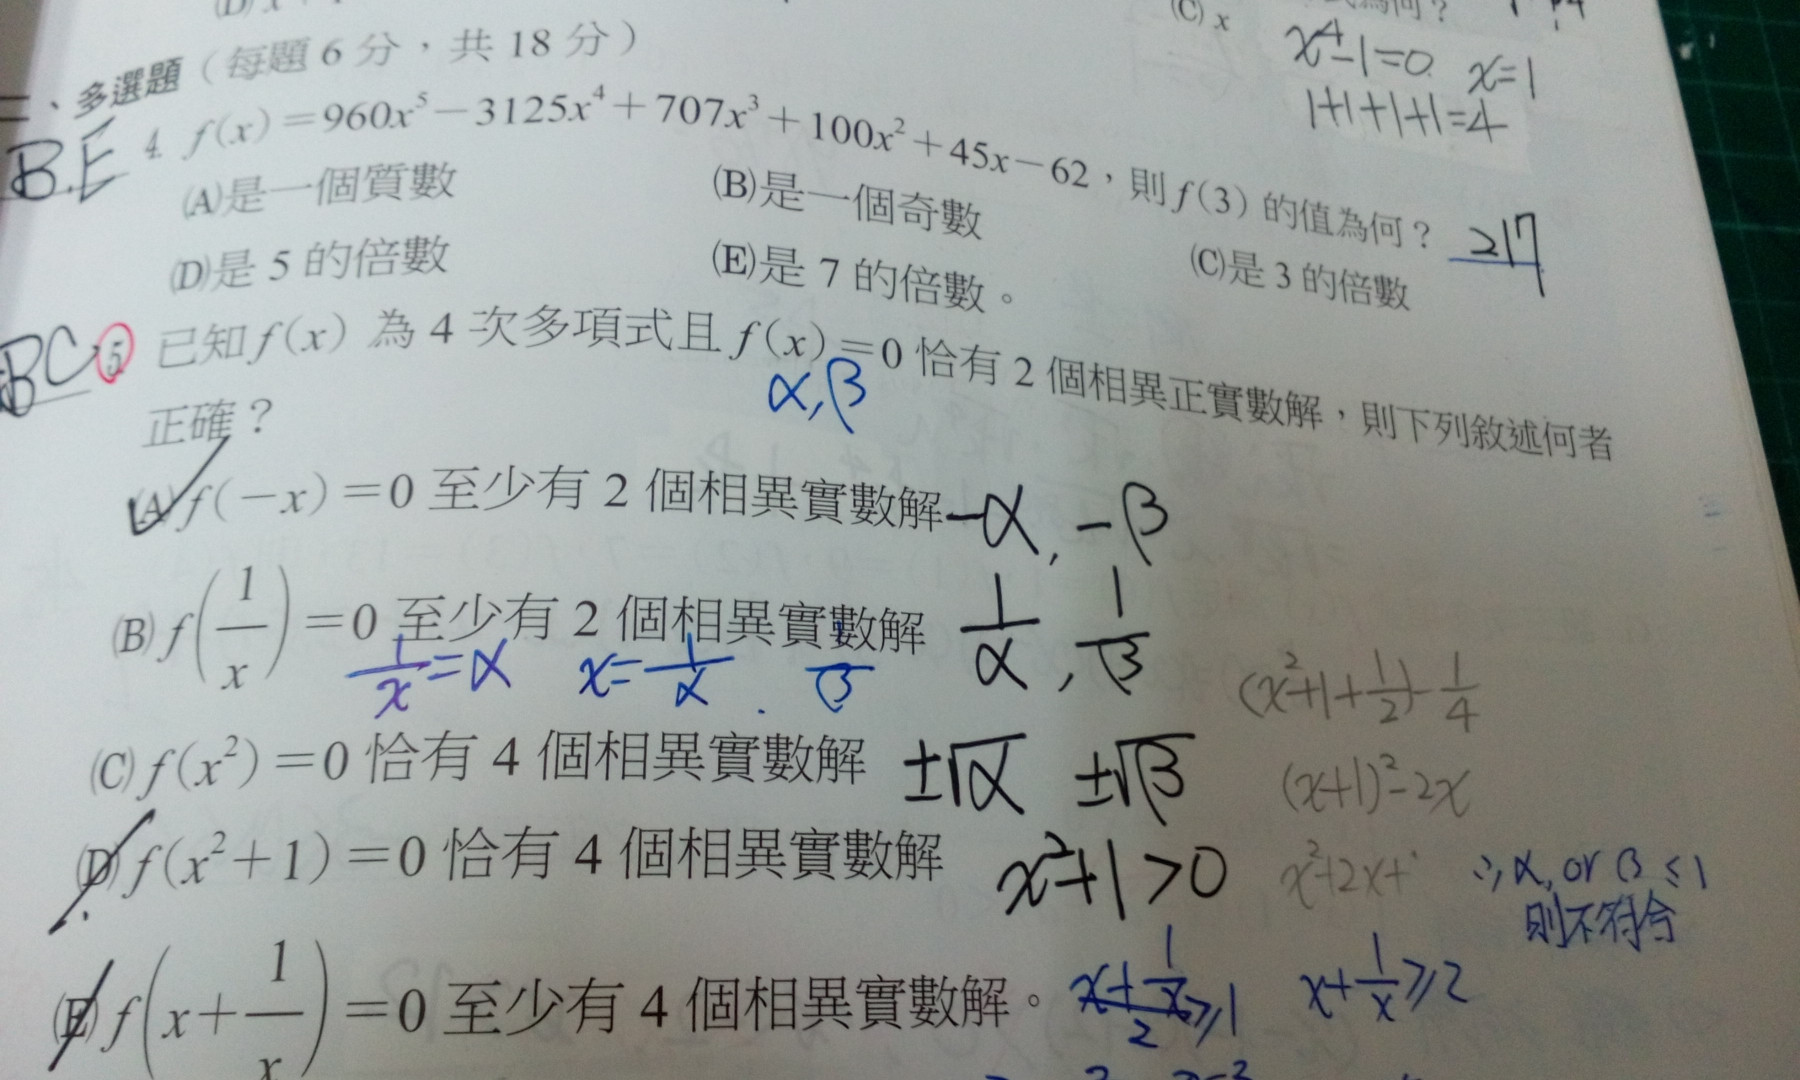 (C) x
x⁴-1=0 x=1
1+1+1+1=4
二、多選題（每題 6 分，共 18 分）
B.E 4. f(x)=960x⁵-3125x⁴+707x³+100x²+45x-62，則 f(3) 的值為何？ 217
(A)是一個質數 (B)是一個奇數 (C)是 3 的倍數
(D)是 5 的倍數 (E)是 7 的倍數。
BC 5 已知 f(x) 為 4 次多項式且 f(x)=0 恰有 2 個相異正實數解，則下列敘述何者
α,β
正確？
(A) f(-x)=0 至少有 2 個相異實數解 -α, -β
(B) f(1/x)=0 至少有 2 個相異實數解 1/α, 1/β
1/x=α x=1/α . 1/β
(x²+1+1/2)-1/4
(C) f(x²)=0 恰有 4 個相異實數解 ±√α ±√β
(x+1)²-2x
(D) f(x²+1)=0 恰有 4 個相異實數解 x²+1>0
x²+2x+
∴α, or β≤1
則不符合
(E) f(x+1/x)=0 至少有 4 個相異實數解。
x+1/x/2≥1 x+1/x≥2